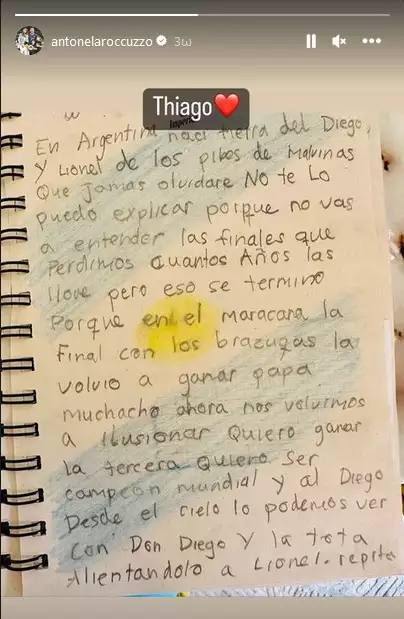 antonelaroccuzzo 3ω
Thiago❤️
En Argentina naci tierra del Diego,
y Lionel de los pibes de Malvinas
Que Jamas olvidare No te Lo
puedo explicar porque no vas
a entender las finales que
Perdimos cuantos Años las
llore pero eso se termino
Porque en el maracana la
Final con los brazucas la
volvio a ganar papa
muchacho ahora nos volvimos
a ilusionar Quiero ganar
la tercera Quiero Ser
campeon mundial y al Diego
Desde el cielo lo podemos ver
con Don Diego y la tota
Alientandolo a Lionel. repite